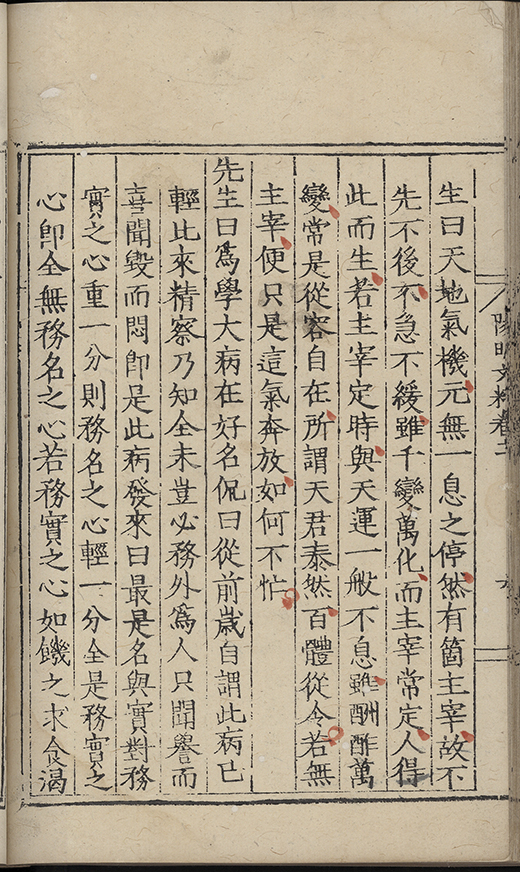 生曰天地氣機元無一息之停然有箇主宰故不
先不後不急不緩雖千變萬化而主宰常定人得
此而生若主宰定時與天運一般不息雖酬酢萬
變常是從容自在所謂天君泰然百體從令若無
主宰便只是這氣奔放如何不忙
先生曰爲學大病在好名侃曰從前歲自謂此病已
輕比來精察乃知全未豈必務外爲人只聞譽而
喜聞毀而悶卽是此病發來曰最是名與實對務
實之心重一分則務名之心輕一分全是務實之
心卽全無務名之心若務實之心如饑之求食渴